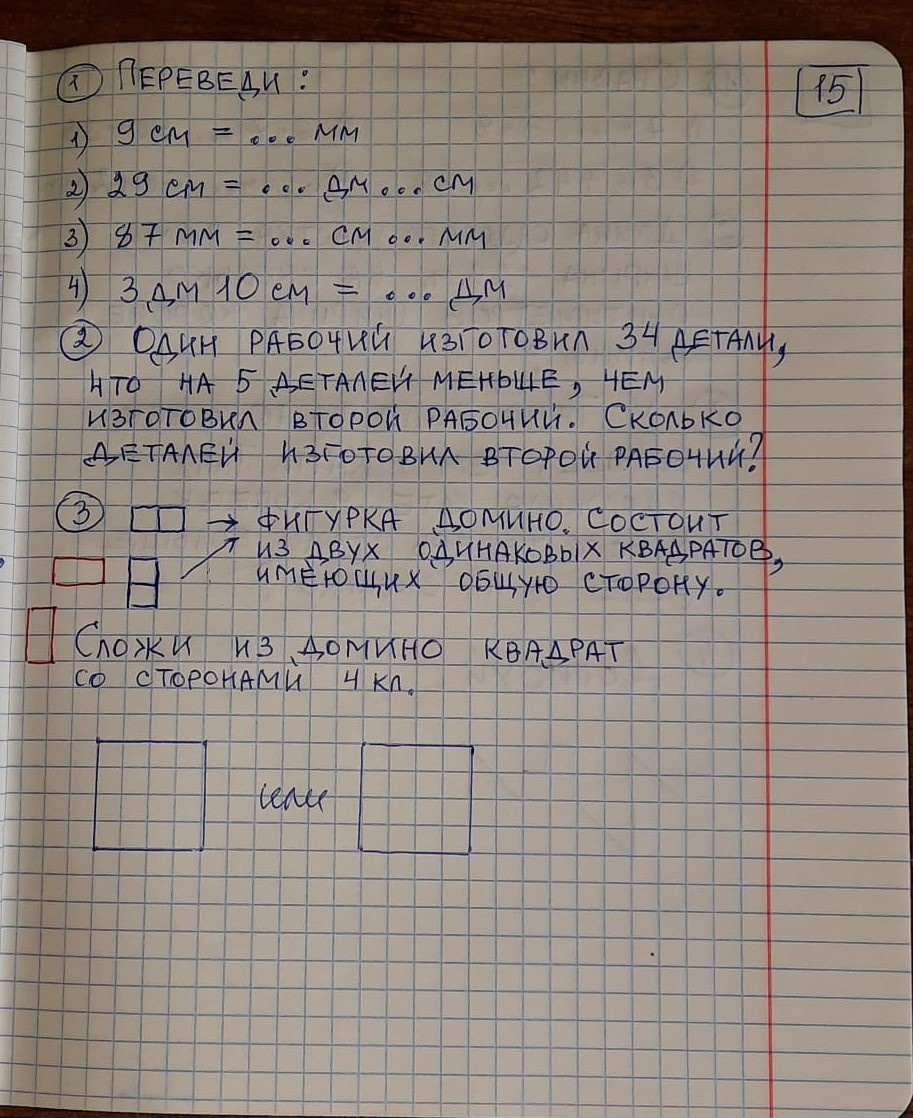 ① ПЕРЕВЕДИ:
15
1) 9 см = ... мм
2) 29 см = ... дм ... см
3) 87 мм = ... см ... мм
4) 3 дм 10 см = ... дм
② ОДИН РАБОЧИЙ ИЗГОТОВИЛ 34 ДЕТАЛИ,
ЧТО НА 5 ДЕТАЛЕЙ МЕНЬШЕ, ЧЕМ
ИЗГОТОВИЛ ВТОРОЙ РАБОЧИЙ. СКОЛЬКО
ДЕТАЛЕЙ ИЗГОТОВИЛ ВТОРОЙ РАБОЧИЙ?
③ → ФИГУРКА ДОМИНО. СОСТОИТ
ИЗ ДВУХ ОДИНАКОВЫХ КВАДРАТОВ,
ИМЕЮЩИХ ОБЩУЮ СТОРОНУ.
СЛОЖИ ИЗ ДОМИНО КВАДРАТ
СО СТОРОНАМИ 4 КЛ.
или